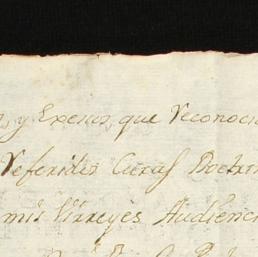 y Excesos que reconoci
referidos Curas Doctri
mis Virreyes Audienci